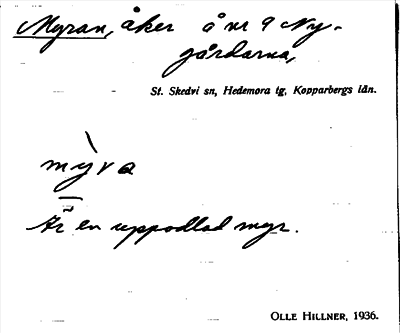 Myran, åker å nr 9 Ny-
gårdarna,
St. Skedvi sn, Hedemora tg, Kopparbergs län.
mỳ̠va
Är en uppodlad myr.
OLLE HILLNER, 1936.